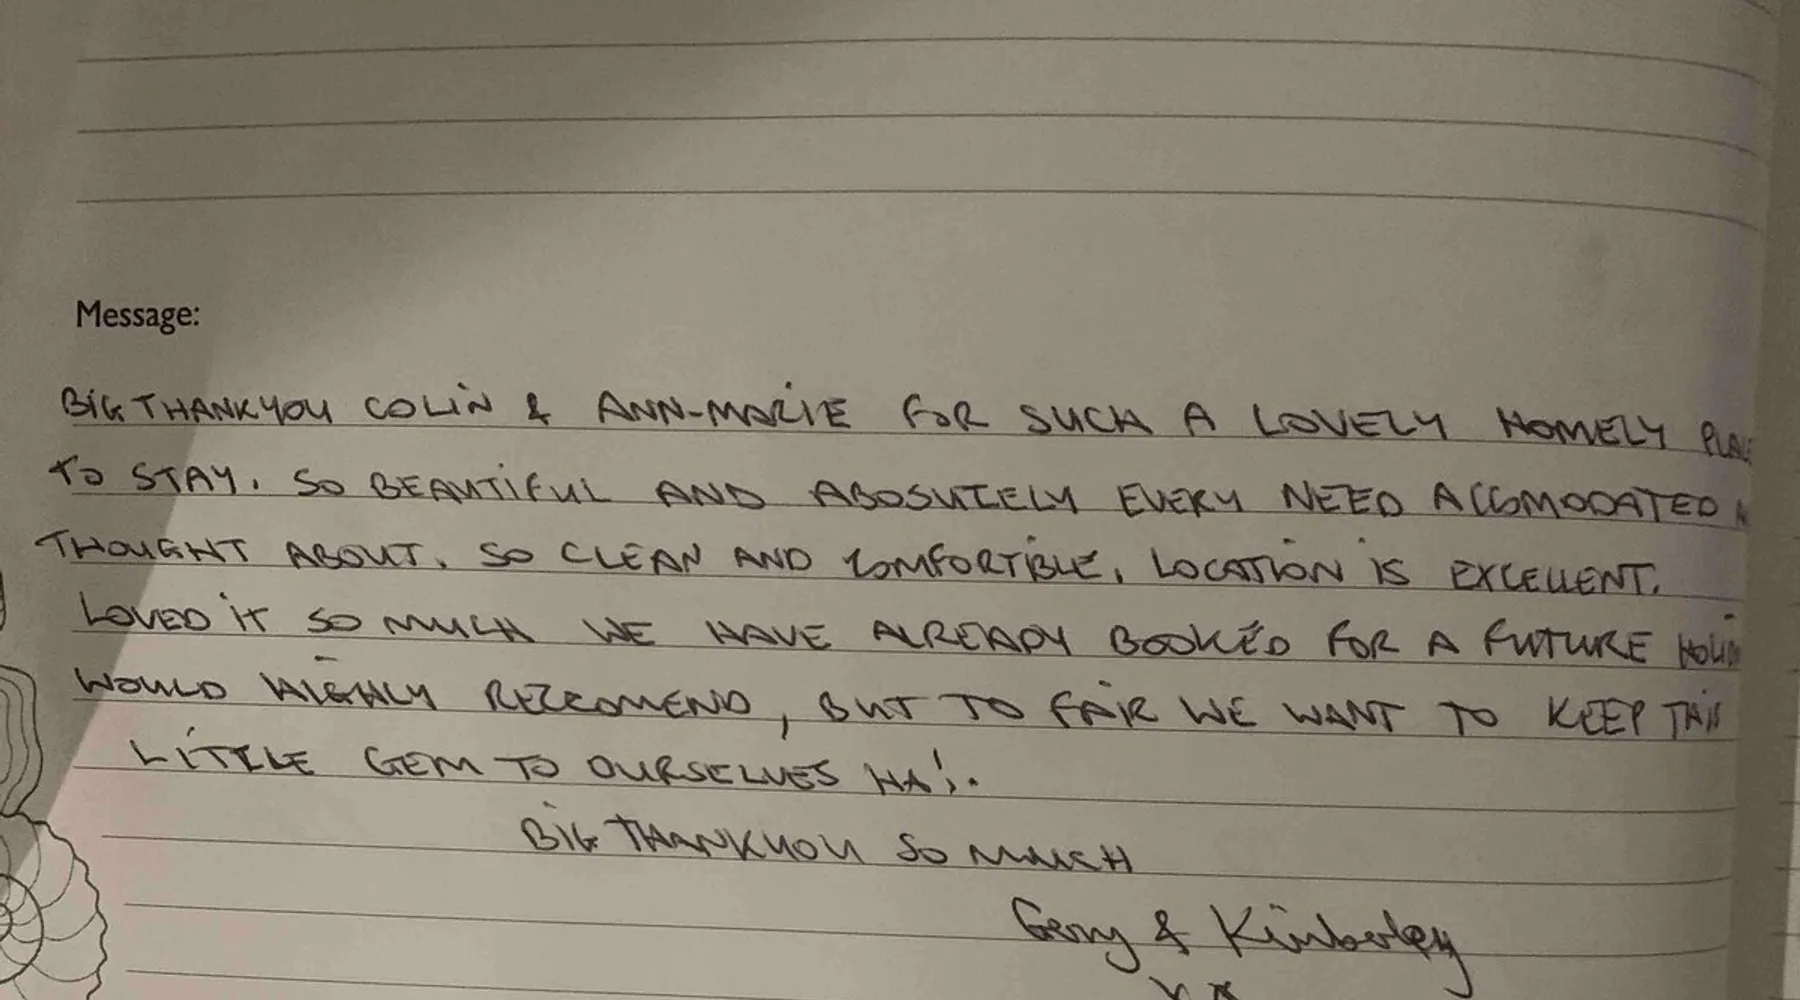 Message:
BIG THANKYOU COLIN & ANN-MARIE FOR SUCH A LOVELY HOMELY
TO STAY. SO BEAUTIFUL AND ABOSUTELY EVERY NEED ACCOMODATED
THOUGHT ABOUT. SO CLEAN AND COMFORTIBLE. LOCATION IS EXCELLENT.
LOVED IT SO MUCH WE HAVE ALREADY BOOKED FOR A FUTURE
WOULD HIGHLY RECCOMEND, BUT TO FAIR WE WANT TO KEEP THIS
LITTLE GEM TO OURSELVES HA!.
BIG THANKYOU SO MUCH
Gerry & Kimberley